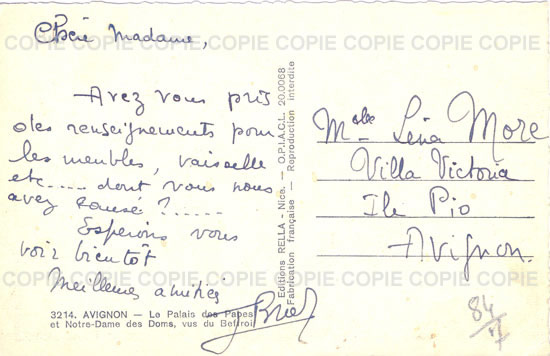 COPIE COPIE COPIE COPIE COPIE COPIE COPIE COPIE
Chère Madame,
Avez vous pris
des renseignements pour
les meubles, vaisselle
etc..... dont vous nous
avez causé ?......
Espérons vous
voir bientôt
Meilleures amitiés
3214. AVIGNON — Le Palais des Papes
et Notre-Dame des Doms, vus du Beffroi
Editions RELLA - Nice. — O.P.I.A.C.L. 20.0068
Fabrication française — Reproduction interdite
Léna More
Villa Victoria
Ile Pio
Avignon.
84